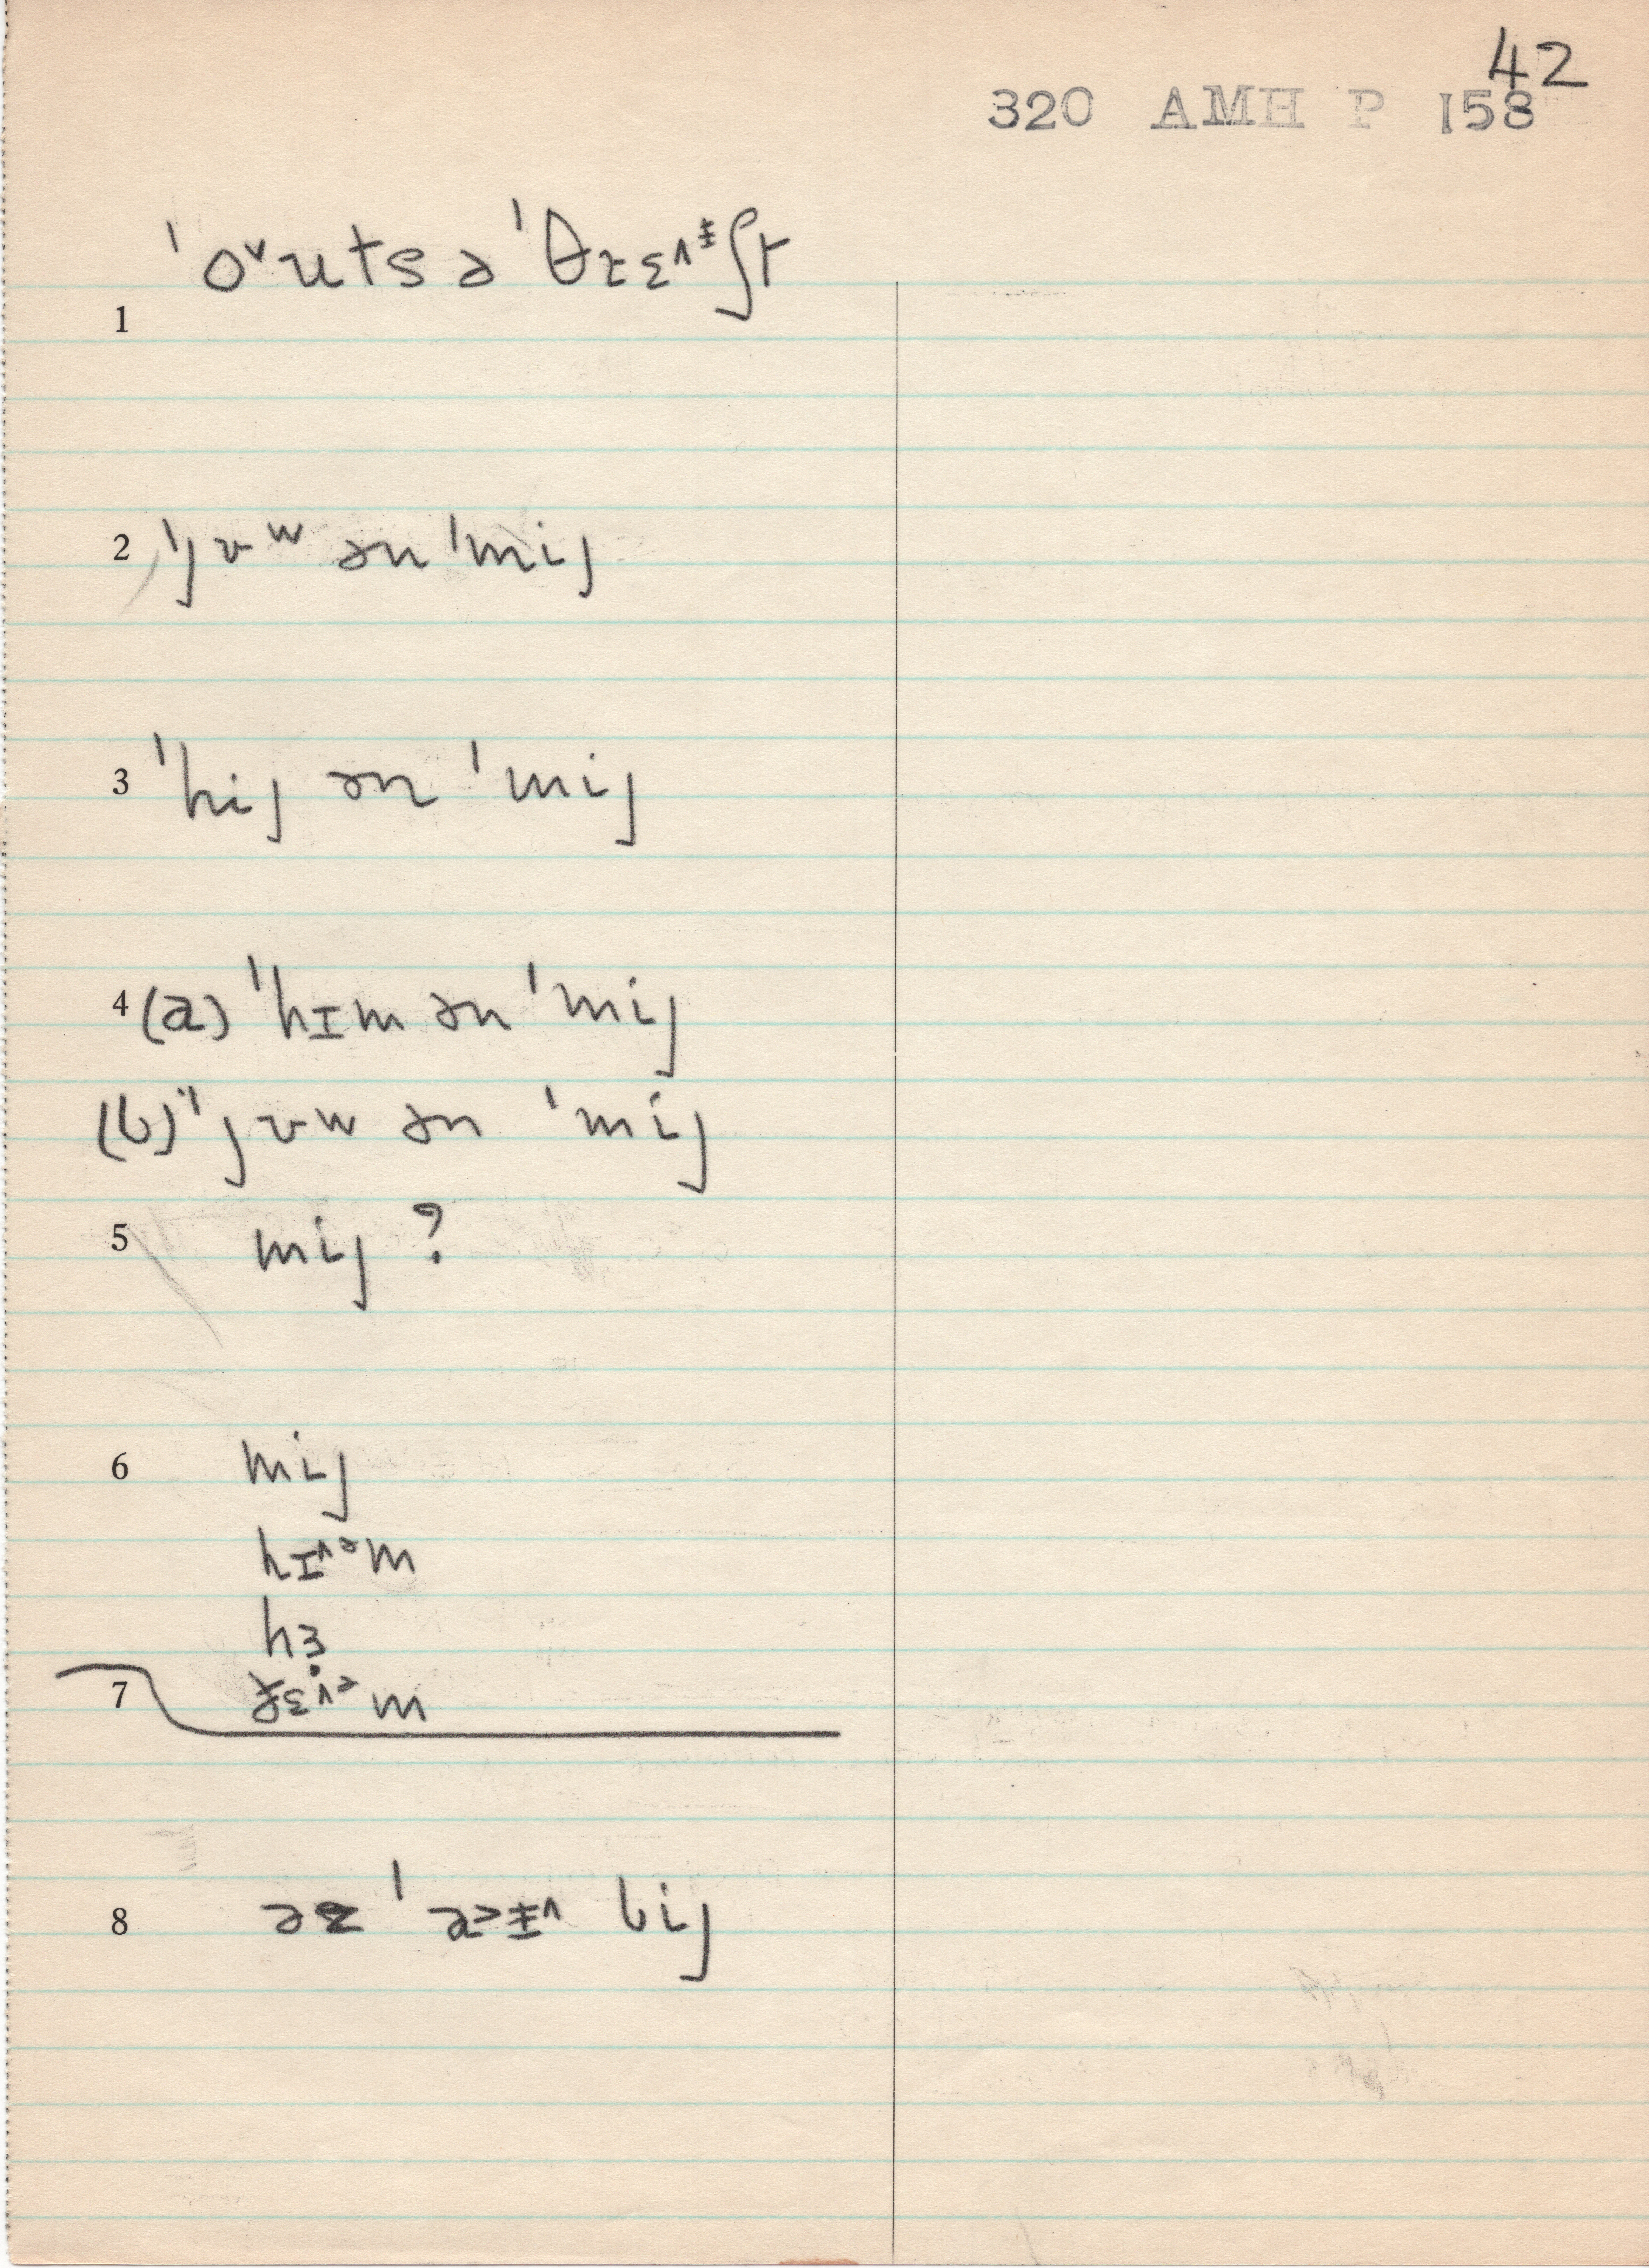 42
320 AMH P 158
1 ˈo˅uts ə ˈθɾɛ^ɨʃt
2 ˈjʊʷ ən ˈmij
3 ˈhij ən ˈmij
4 (a) ˈhɪm ən ˈmij
(b) ˈjʊw ən ˈmij
5 mij ?
6 mij
hɪ^ᵊm
hɜ
7 ðɛ^ᵊm
8 əz ˈa>ɨ^ bij